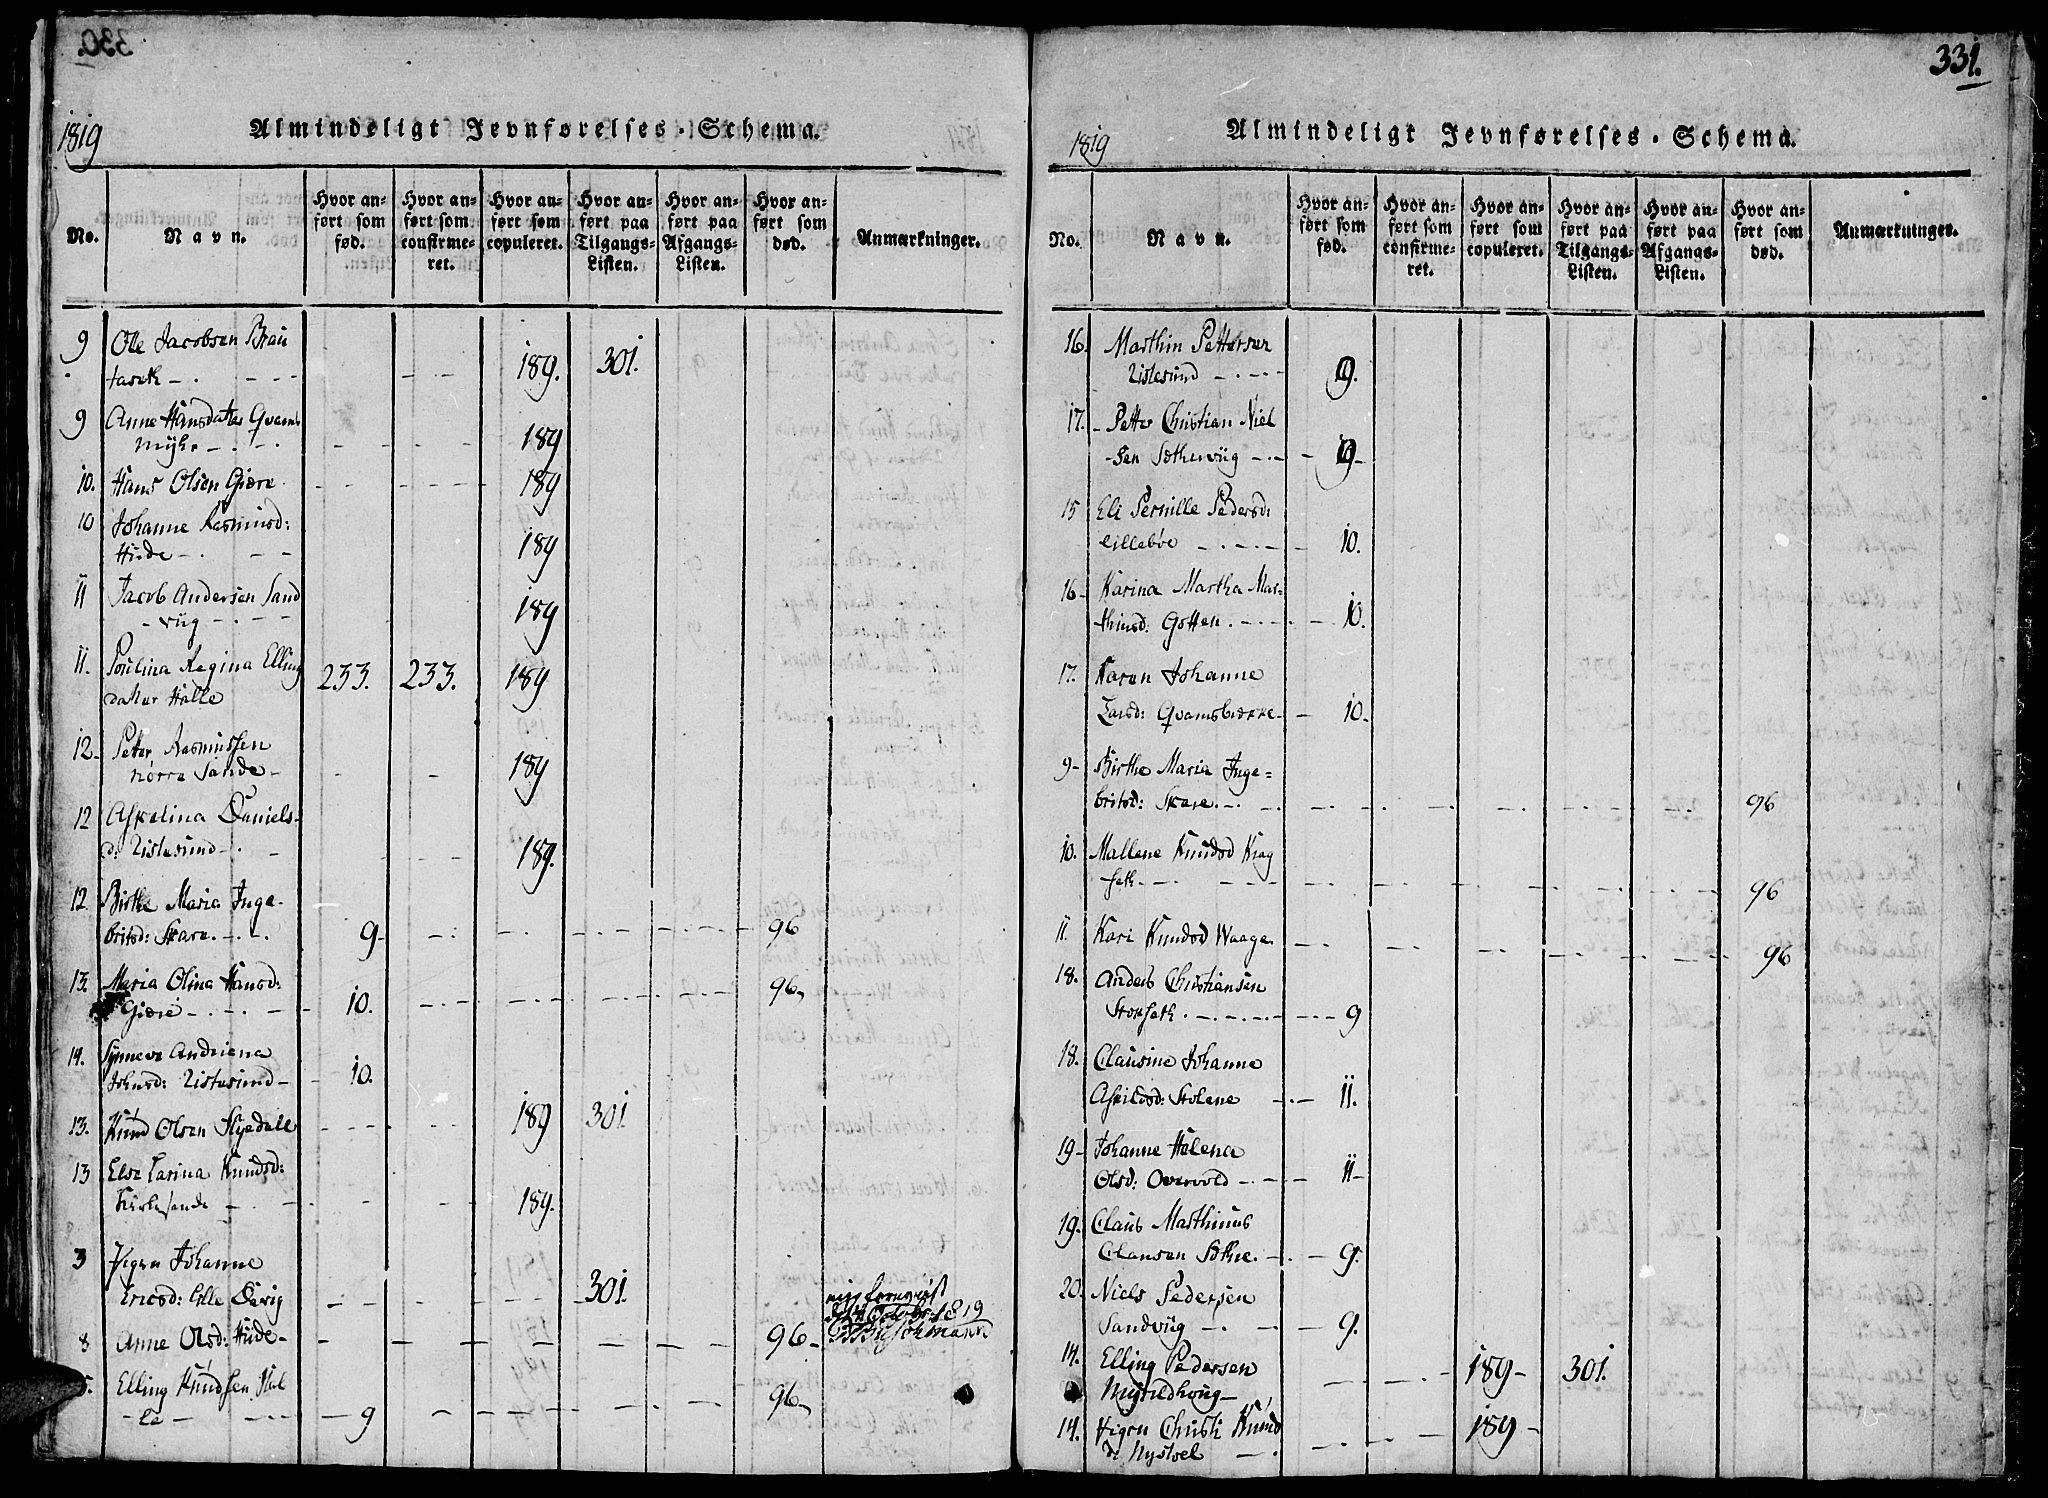 330.
1819
Almindeligt Jevnførelses-Schema.
No.
Navn.
Hvor anført som fød.
Hvor anført som confirmeret.
Hvor anført som copuleret.
Hvor anført paa Tilgangs-Listen.
Hvor anført paa Afgangs-Listen.
Hvor anført som død.
Anmærkninger.
9 Ole Jacobsen Brau
taseth 189. 301.
9 Anne Hansdatter Qvams
myhr 189
10. Hans Olsen Giøre 189
10 Johanne Rasmusd:
Hide 189
11 Jacob Andersen Sand
viig 189
11. Poulina Regina Elling
datter Halle 233. 233. 189
12 Petter Rasmussen
nørre Sande 189
12 Askelina Daniels-
d: Ristesund 189.
12 Birthe Maria Inge-
britsd: Skare. 9 96
13. Maria Olina Hansd:
Giøre 10. 96
14. Synneve Andriena
Johnsd: Ristesund 10.
13. Knud Olsen Skjedall 189 301
13 Else Carina Knudsd:
Kirkesande 189.
3 Pigen Johanne
Ericsd: Lille Døvig 301.
8 Anne Olsd: Hide 96
5. Elling Knudsen Hal
le 9 96
331.
1819
Almindeligt Jevnførelses-Schema.
No.
Navn.
Hvor anført som fød.
Hvor anført som confirmeret.
Hvor anført som copuleret.
Hvor anført paa Tilgangs-Listen.
Hvor anført paa Afgangs-Listen.
Hvor anført som død.
Anmærkninger.
16. Marthin Pettersen
Ristesund 9.
17. Petter Christian Niel
sen Sætherviig 9
15 Eli Pernille Pedersd:
Lillebøe 10.
16 Karina Martha Mar-
thinsd: Gotten. 10.
17. Karen Johanne
Larsd: Qvamsbække 10.
9 Birthe Maria Inge-
britsd: Skare. 96
10. Mallene Knudsd Krag
seth 96
11. Kari Knudsd Waage. 96
18. Anders Christiansen
Storseth. 9
18. Clausine Johanne
Askildsd: Stolene 11.
19 Johanne Halena
Olsd: Overvold 11
19. Claus Marthinus
Clausen Sæthre. 9.
20. Niels Pedersen
Sandviig 9.
14. Elling Pedersen
Myrildhoug 189 301.
14. Pigen Christi Knud
d: Nystoel 189